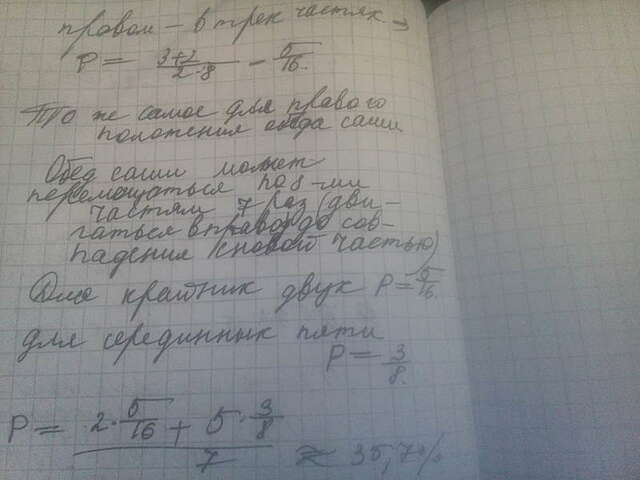 правом - в трех частях →
P = 3+2/2·8 - 5/16.
То же самое для правого
положения обеда саши
Обед саши может
перемещаться по 8-ми
частям 7 раз (дви-
гаться вправо до сов-
падения с новой частью)
Для крайних двух P = 5/16.
для серединных пяти
P = 3/8.
P = 2·5/16 + 5·3/8 / 7 ≈ 35,7%